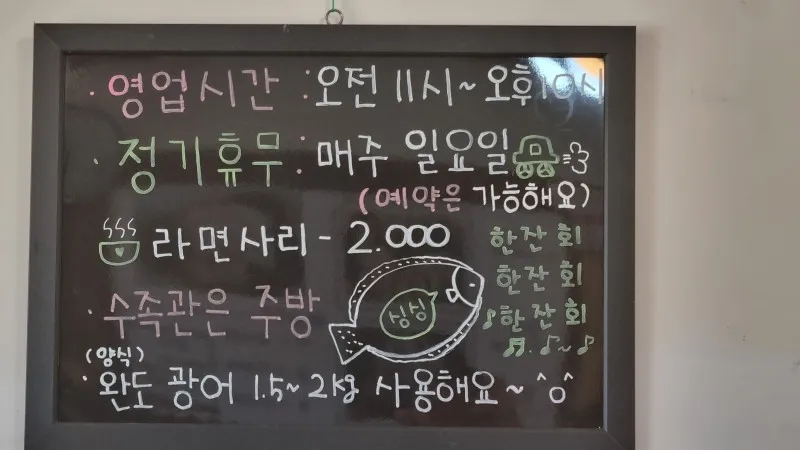 · 영업시간 : 오전 11시~ 오후10시
· 정기휴무 : 매주 일요일
(예약은 가능해요)
라면사리 - 2.000
한잔 회
한잔 회
♪한잔 회
♬. ♪~♪
· 수족관은 주방
싱싱
(양식)
· 완도 광어 1.5~2kg 사용해요~ ^o^